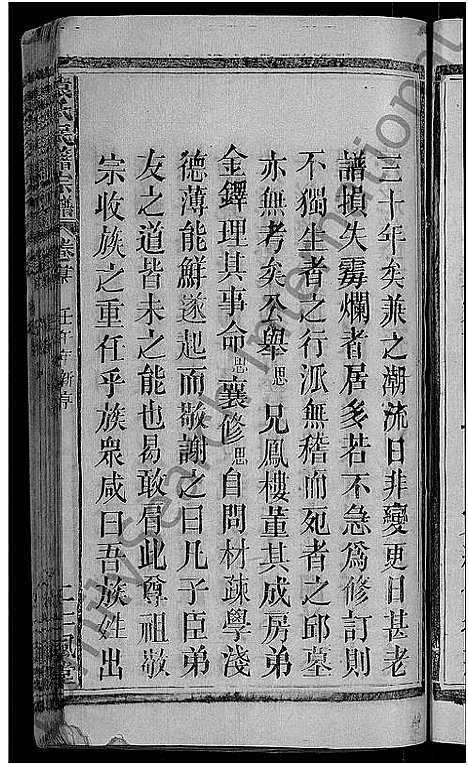 三十年矣兼之潮流日非變更日甚老
譜損失霉爛者居多若不急爲修訂則
不獨生者之行派無稽而死者之邱墓
亦無考矣公舉思兄鳳樓董其成房弟
金鐸理其事命思襄修思自問材疎學淺
德薄能鮮遂起而敬謝之曰凡子臣弟
友之道皆未之能也曷敢肩此尊祖敬
宗收族之重任乎族衆咸曰吾族姓出
氏民譜宗譜